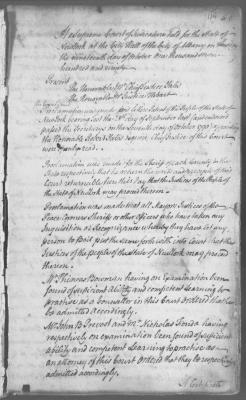 At a Supreme Court of Judicature held for the State of
New York at the City Hall of the City of Albany on
nineteenth day of October One thousand seven
hundred and ninety
Present
The Honorable Mr Chief Justice Yates
The Honorable Mr Justice Hobart
Letters Patent of the People of the State of
New York bearing date the 28th day of September last and
passed the Secretarys on the Seventh day of October 1790
the Honorable Robert Yates Esquire Chief Justice of this Court
were read.
Proclamation was made for the Sheriff of each County in the
State respectively that he return the writs and precepts of this
Court returnable here this day that the Justices of the People of
the State of New York may proceed thereon.
Proclamation was made that all Mayors Justices of the
Peace Coroners Sheriffs or other Officers who have taken any
Inquisition or Recognizance whereby they have let any
person to Bail put the same forthwith into Court that the
Justices of the people of the State of New York may proceed
thereon.
Mr Thomas Bowman having on Examination been
found of sufficient Ability and competent Learning to
practice as a Counsellor in this Court Ordered that he
be admitted accordingly.
Mr John B Prevost and Mr Nicholas Fonda having
respectively on examination been found of sufficient
ability and competent Learning to practice as
an attorney of this Court Ordered that they be respectively
admitted accordingly.